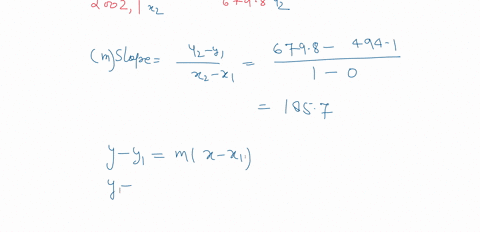 2002, 1 x₂ 679.8 y₂
(m) Slope = y₂-y₁ / x₂-x₁ = 679.8 - 494.1 / 1 - 0
= 185.7
y-y₁ = m(x-x₁)
y₁-